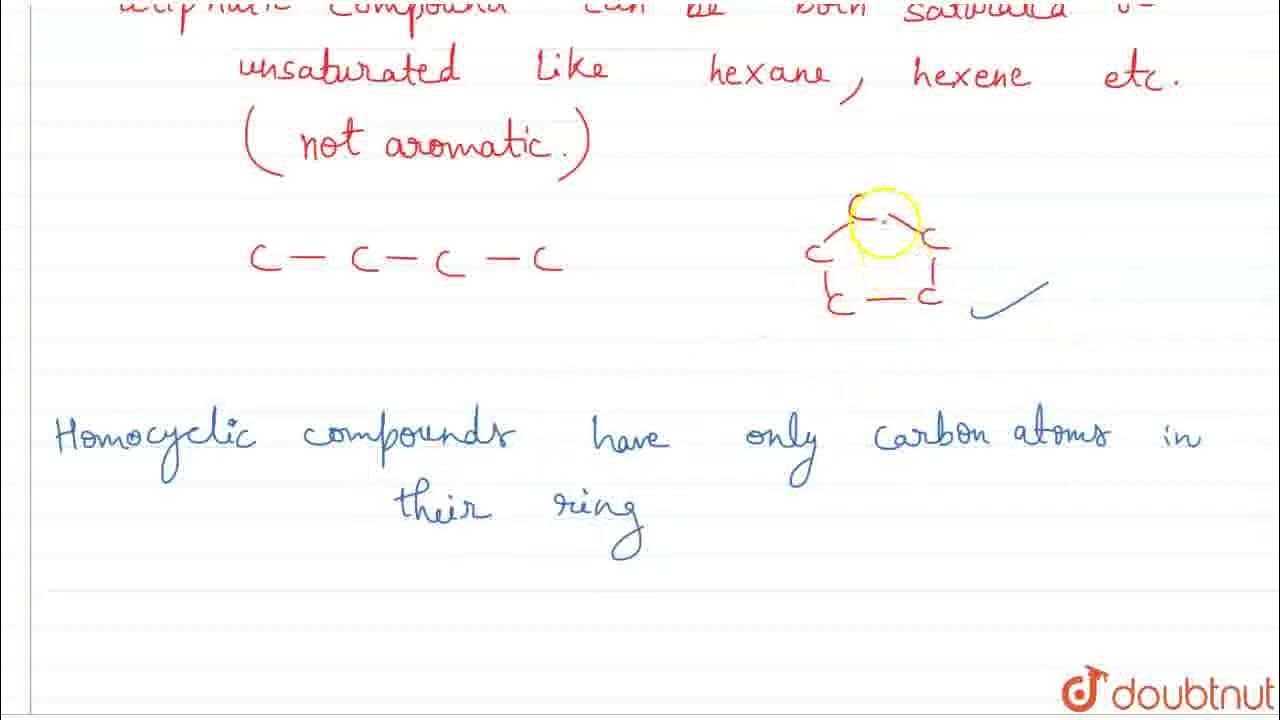 aliphatic compound can be both saturated &
unsaturated like hexane, hexene etc.
(not aromatic.)
C — C — C — C
C
C C
C — C
Homocyclic compounds have only carbon atoms in
their ring
doubtnut